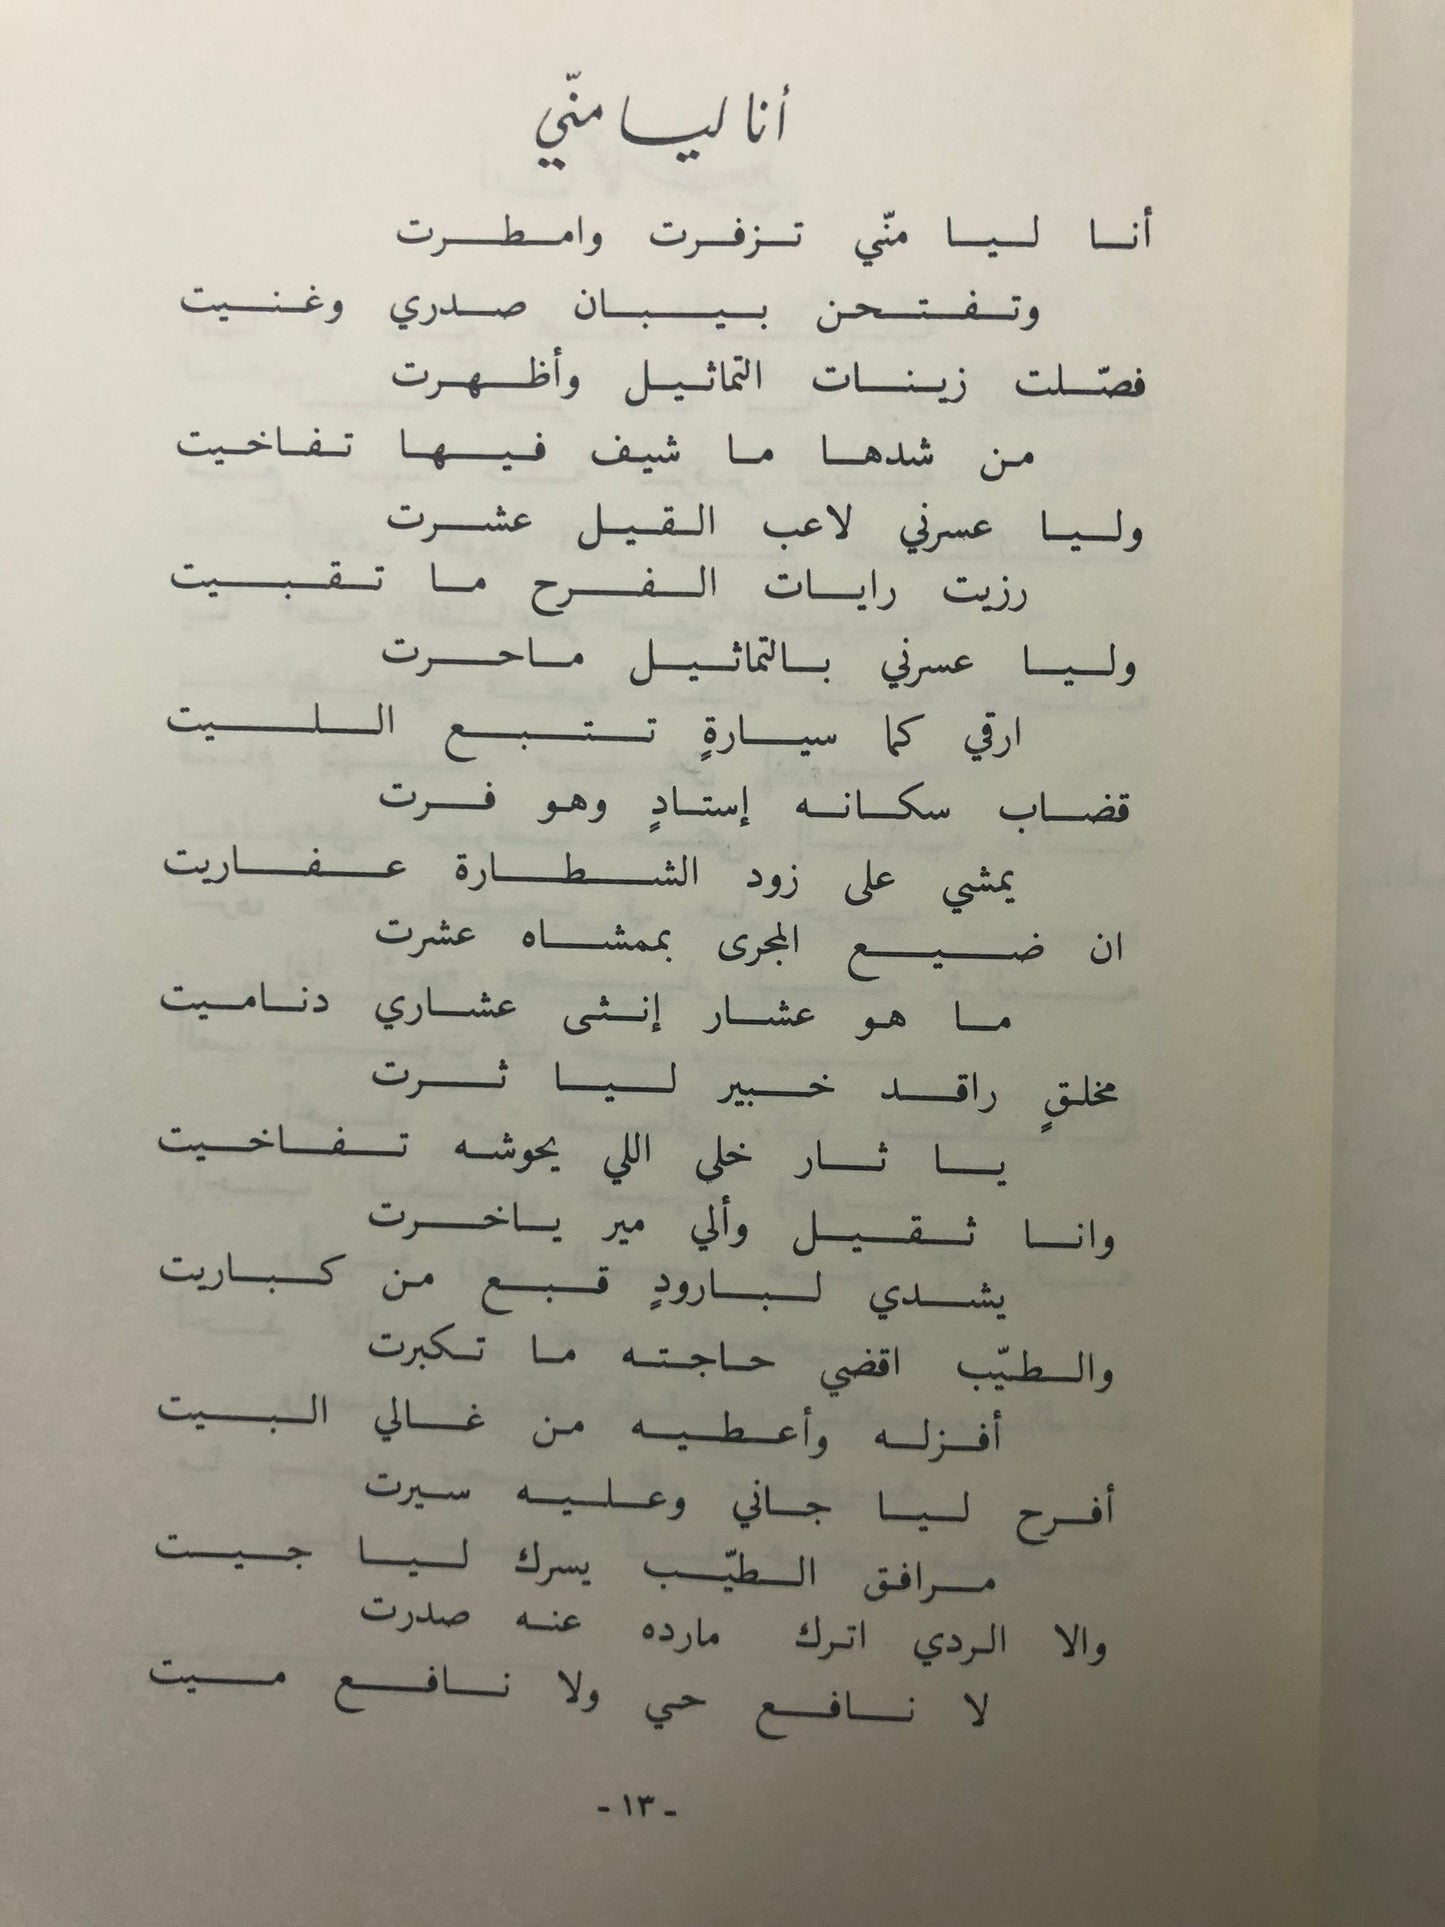 أنا ليا منّي
أنا ليا منّي تزفرت وامطرت
وتفتحن بيبان صدري وغنيت
فصّلت زينات التماثيل وأظهرت
من شدها ما شيف فيها تفاخيت
وليا عسرني لاعب القيل عشرت
رزيت رايات الفرح ما تقبيت
وليا عسرني بالتماثيل ماحرت
ارقي كما سيارةٍ تتبع الليت
قضاب سكانه إستادٍ وهو فرت
يمشي على زود الشطارة عفاريت
ان ضيع المجرى بممشاه عشرت
ما هو عشار إنثى عشاري دناميت
مخلقٍ راقد خبير ليا ثرت
يا ثار خلى اللي يحوشه تفاخيت
وانا ثقيل وألي مير ياخرت
يشدي لبارودٍ قبع من كباريت
والطيّب اقضي حاجته ما تكبرت
أفزله وأعطيه من غالي البيت
أفرح ليا جاني وعليه سيرت
مرافق الطيّب يسرك ليا جيت
والا الردي اترك مارده عنه صدرت
لا نافع حي ولا نافع ميت
- ١٣ -